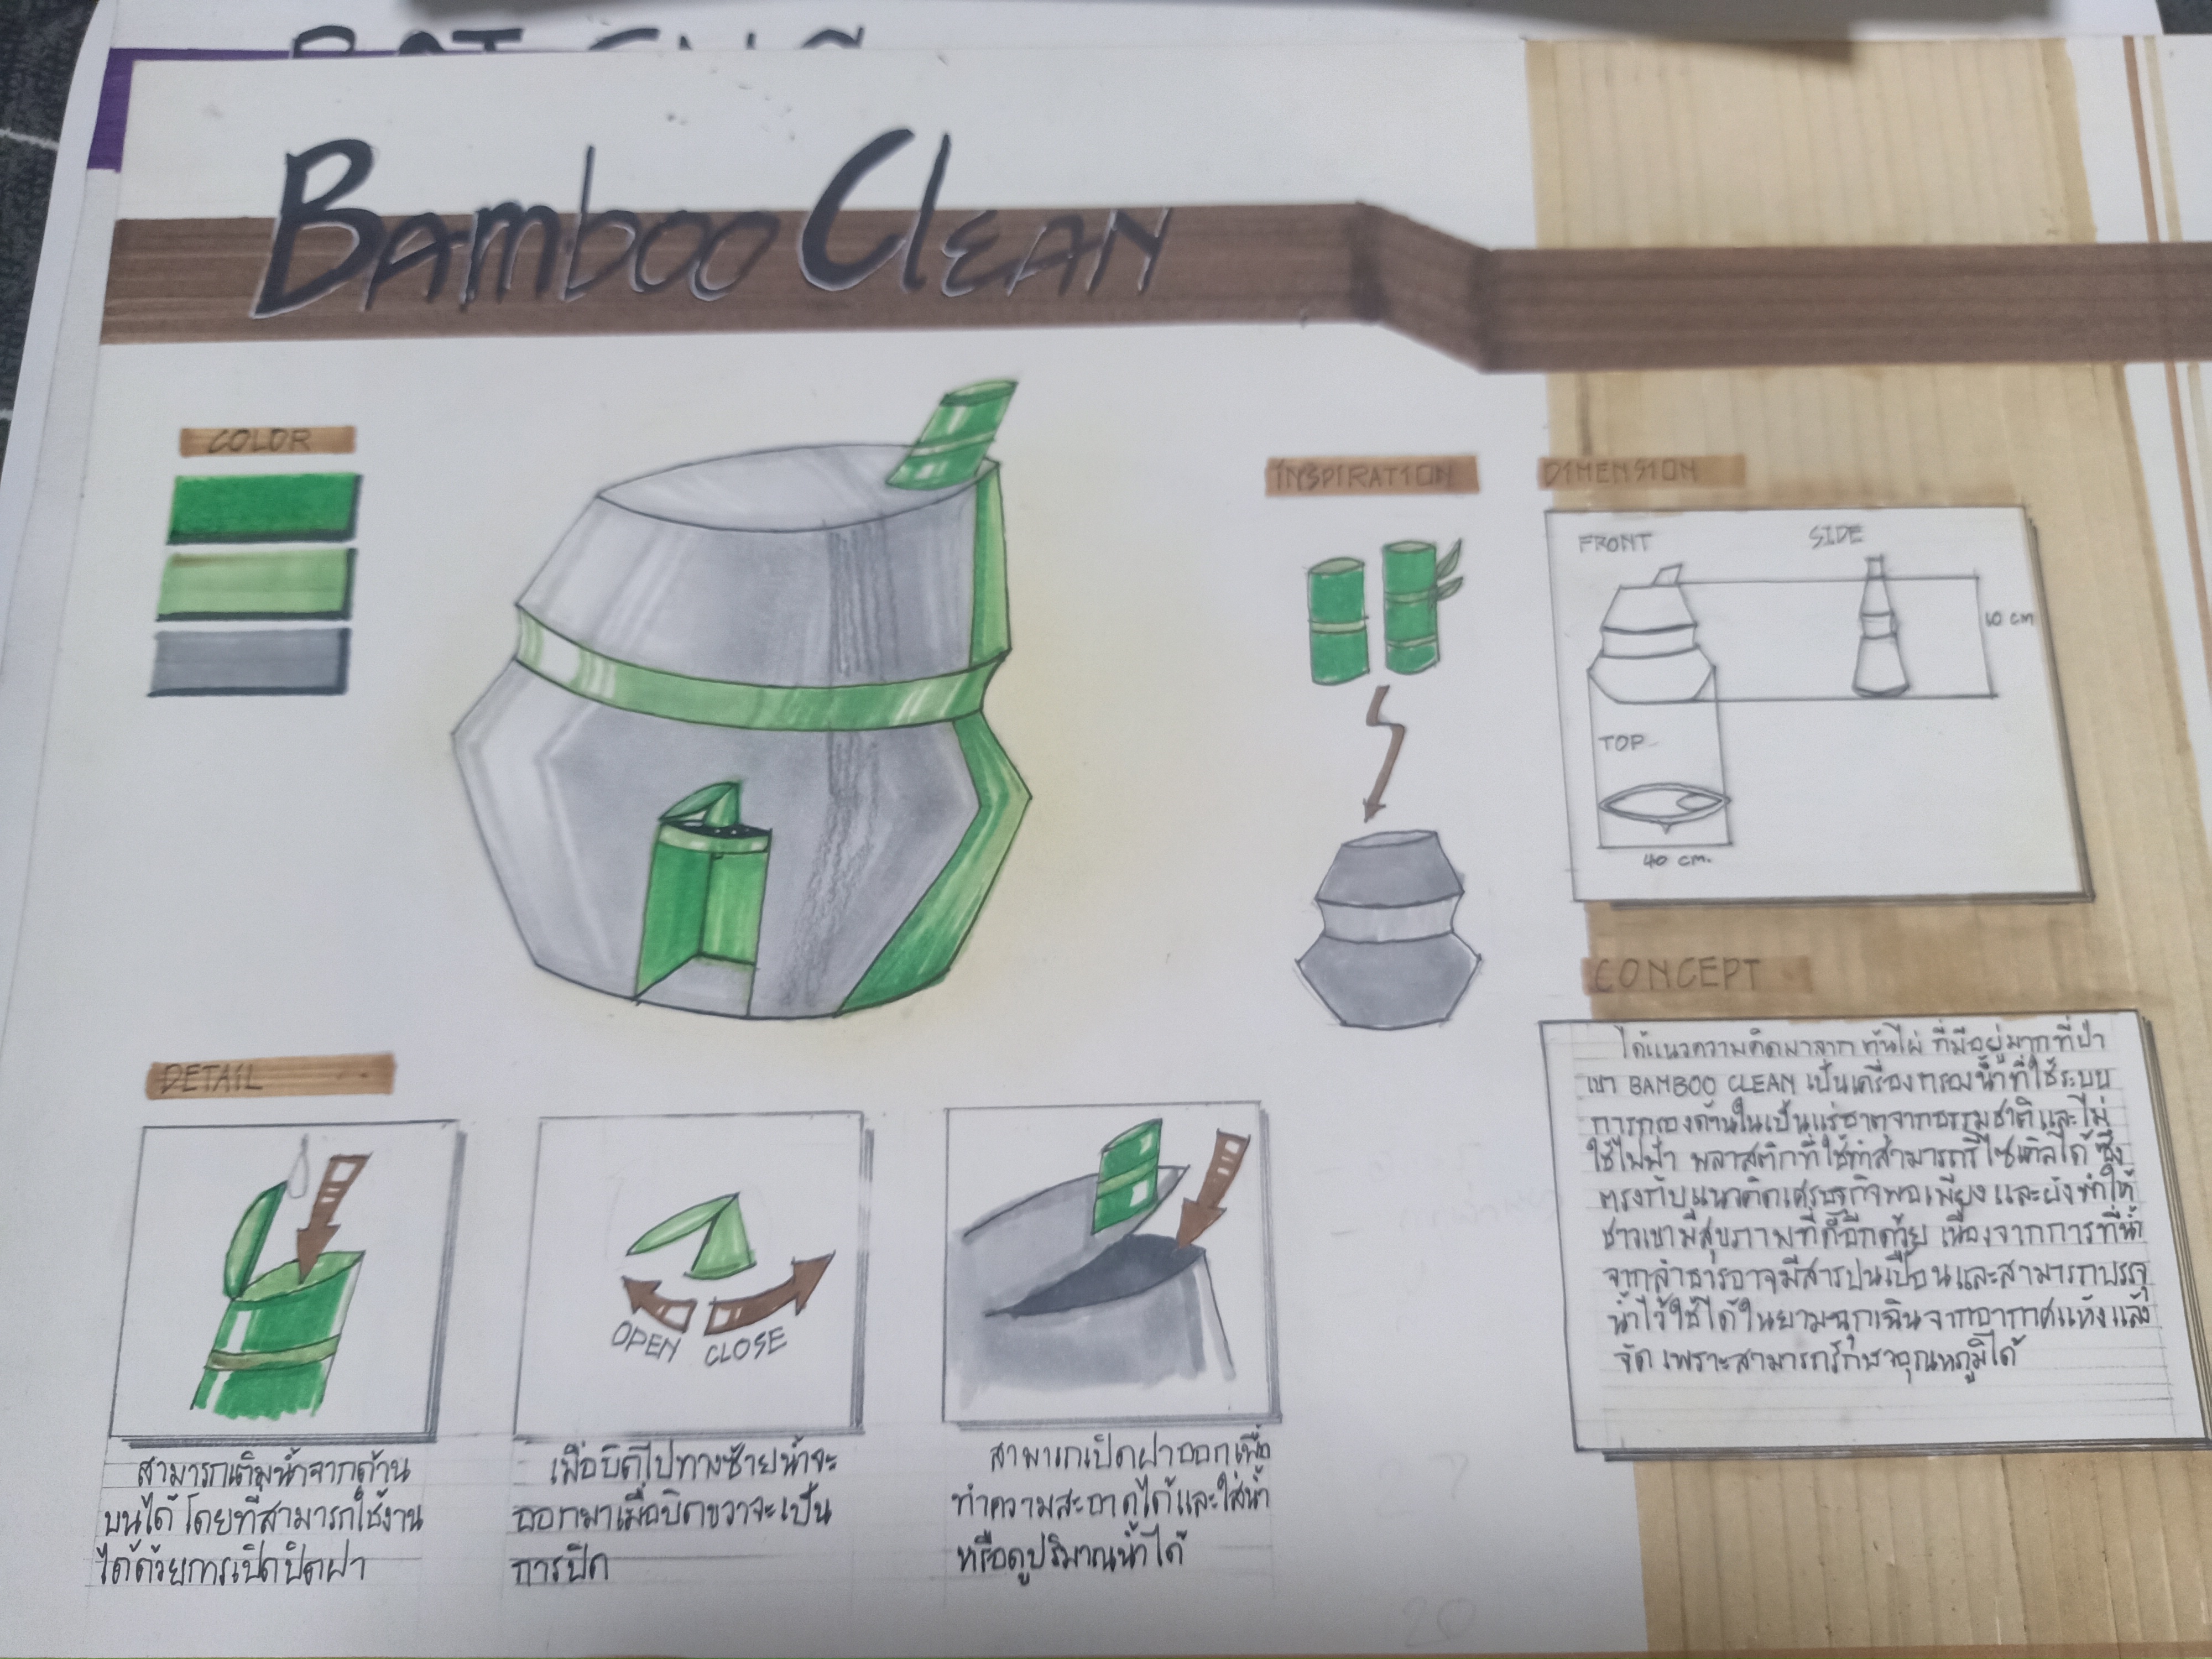 BAmboo ClEAN
COLOR
INSPIRATION
DIMENSION
FRONT
SIDE
10 cm
TOP
40 cm.
CONCEPT
ได้แนวความคิดมาจาก ต้นไผ่ ที่มีอยู่มากที่ป่า
เขา BAMBOO CLEAN เป็นเครื่องกรองน้ำที่ใช้ระบบ
การกรองด้านในเป็นแร่ธาตุจากธรรมชาติและไม่
ใช้ไฟฟ้า พลาสติกที่ใช้ทำสามารถรีไซเคิลได้ ซึ่ง
ตรงกับแนวคิดเศรษฐกิจพอเพียง และยังทำให้
ชาวเขามีสุขภาพที่ดีอีกด้วย เนื่องจากการที่น้ำ
จากลำธารอาจมีสารปนเปื้อนและสามารถบรรจุ
น้ำไว้ใช้ได้ในยามฉุกเฉินจากอากาศแห้งแล้ง
จัด เพราะสามารถรักษาอุณหภูมิได้
DETAIL
OPEN
CLOSE
สามารถเติมน้ำจากด้าน
บนได้ โดยที่สามารถใช้งาน
ได้ด้วยการเปิดปิดฝา
เมื่อบิดไปทางซ้ายน้ำจะ
ออกมาเมื่อบิดขวาจะเป็น
การปิด
สามารถเปิดฝาออกเพื่อ
ทำความสะอาดได้และใส่น้ำ
หรือดูปริมาณน้ำได้
20